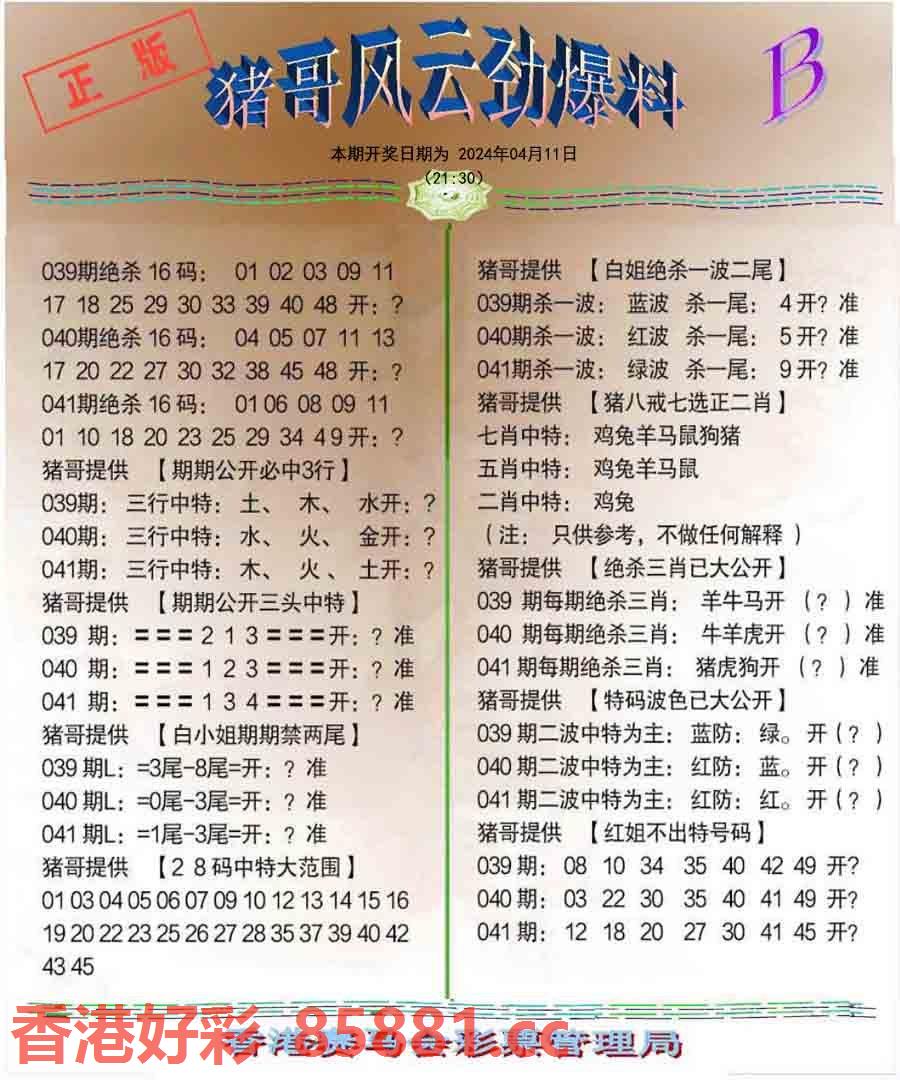 正版
猪哥风云劲爆料
B
本期开奖日期为 2024年04月11日
(21:30)
039期绝杀16码： 01 02 03 09 11
17 18 25 29 30 33 39 40 48 开：？
040期绝杀16码： 04 05 07 11 13
17 20 22 27 30 32 38 45 48 开：？
041期绝杀16码： 01 06 08 09 11
01 10 18 20 23 25 29 34 49 开：？
猪哥提供 【期期公开必中3行】
039期：三行中特：土、 木、 水开：？
040期：三行中特：水、 火、 金开：？
041期：三行中特：木、 火、 土开：？
猪哥提供 【期期公开三头中特】
039 期：〓〓〓2 1 3〓〓〓开：？准
040 期：〓〓〓1 2 3〓〓〓开：？准
041 期：〓〓〓1 3 4〓〓〓开：？准
猪哥提供 【白小姐期期禁两尾】
039期L：=3尾-8尾=开：？准
040期L：=0尾-3尾=开：？准
041期L：=1尾-3尾=开：？准
猪哥提供 【28码中特大范围】
01 03 04 05 06 07 09 10 12 13 14 15 16
19 20 22 23 25 26 27 28 35 37 39 40 42
43 45
猪哥提供 【白姐绝杀一波二尾】
039期杀一波： 蓝波 杀一尾： 4开？准
040期杀一波： 红波 杀一尾： 5开？准
041期杀一波： 绿波 杀一尾： 9开？准
猪哥提供 【猪八戒七选正二肖】
七肖中特： 鸡兔羊马鼠狗猪
五肖中特： 鸡兔羊马鼠
二肖中特： 鸡兔
（注： 只供参考，不做任何解释）
猪哥提供 【绝杀三肖已大公开】
039 期每期绝杀三肖： 羊牛马开 （？）准
040 期每期绝杀三肖： 牛羊虎开 （？）准
041期每期绝杀三肖： 猪虎狗开 （？）准
猪哥提供 【特码波色已大公开】
039期二波中特为主：蓝防：绿。开(？)
040期二波中特为主：红防：蓝。开(？)
041期二波中特为主：红防：红。开(？)
猪哥提供 【红姐不出特号码】
039期： 08 10 34 35 40 42 49 开?
040期： 03 22 30 35 40 41 49 开?
041期： 12 18 20 27 30 41 45 开?
香港好彩 85881.cc
香港赛马会彩票管理局